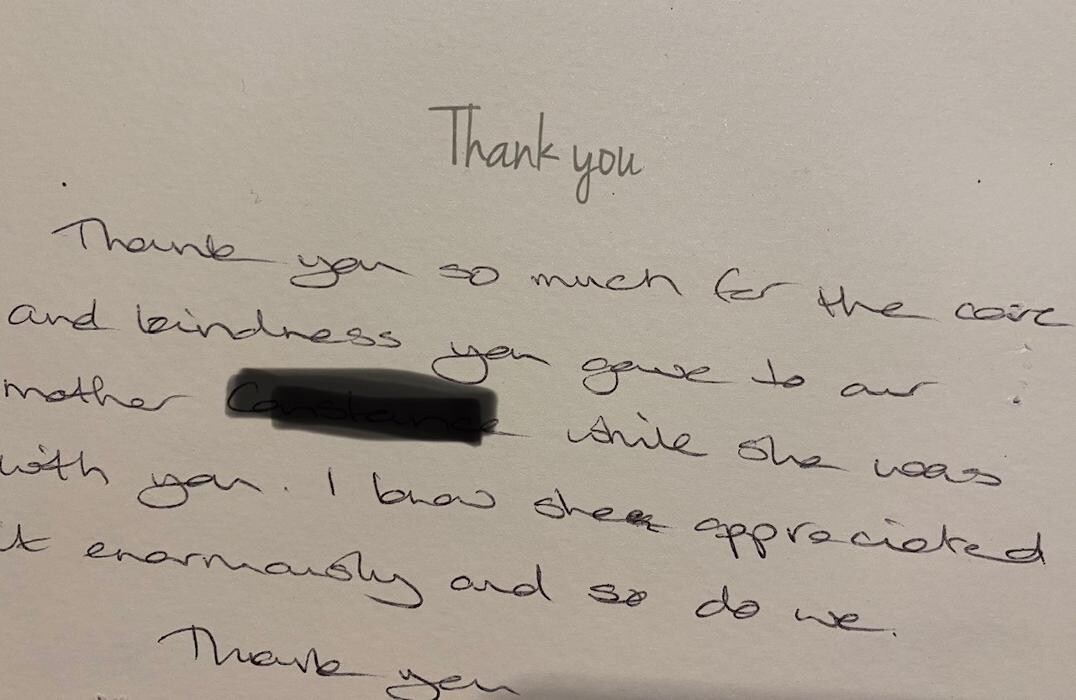 Thank you
Thank you so much for the care
and kindness you gave to our
mother while she was
with you. I know she appreciated
it enormously and so do we.
Thank you